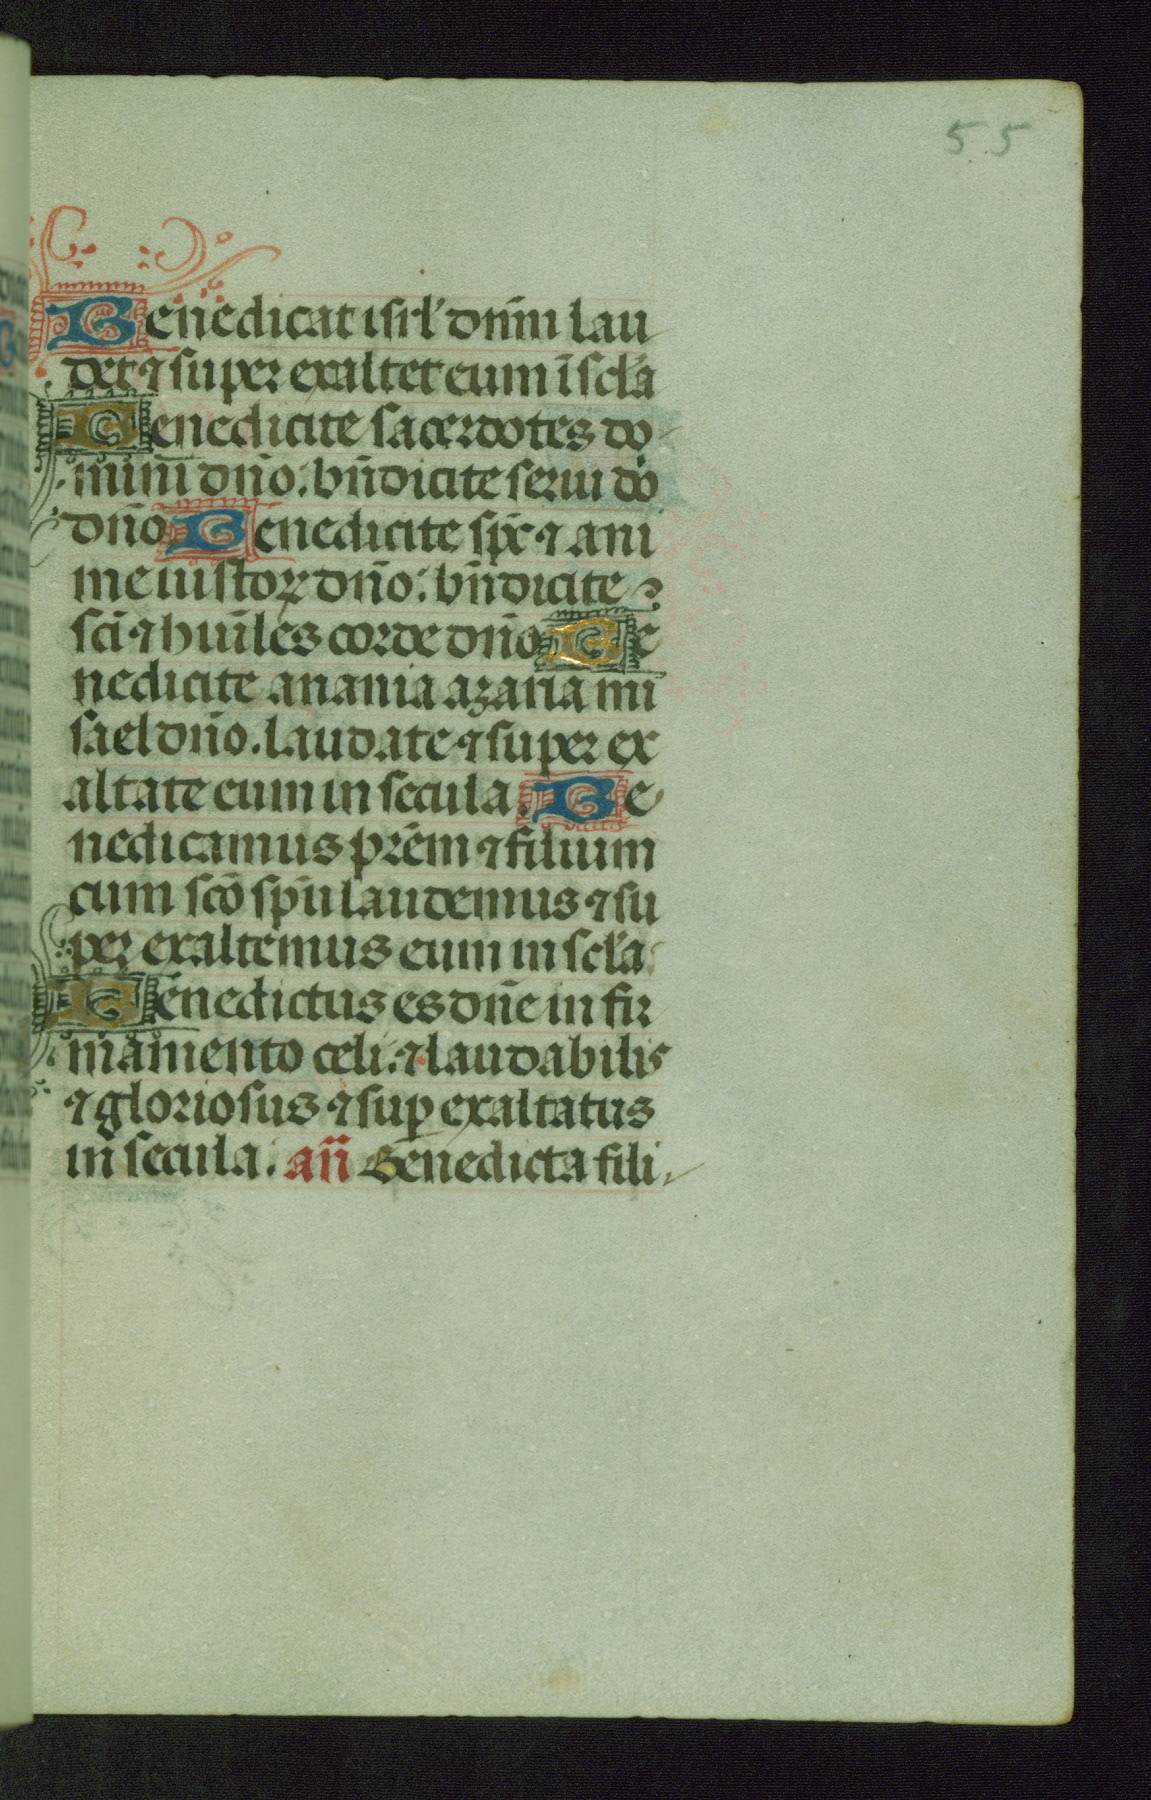 55
Benedicat isrl' dnm̄ lau
det ⁊ super exaltet eum ī scl̄a
Benedicite sacerdotes do
mini dn̄o. bn̄dicite serui do
dn̄o Benedicite sp̄c ⁊ ani
me iustoꝝ dn̄o. bn̄dicite
sc̄i ⁊ huīles corde dn̄o Be
nedicite anania azaria mi
sael dn̄o. laudate ⁊ super ex
altate eum in secula. Be
nedicamus pr̄em ⁊ filium
cum sc̄o sp̄u laudemus ⁊ su
per exaltemus eum in scl̄a
Benedictus es dn̄e in fir
mamento celi. ⁊ laudabilis
⁊ gloriosus ⁊ suꝑ exaltatus
in secula. an̄ Benedicta fili